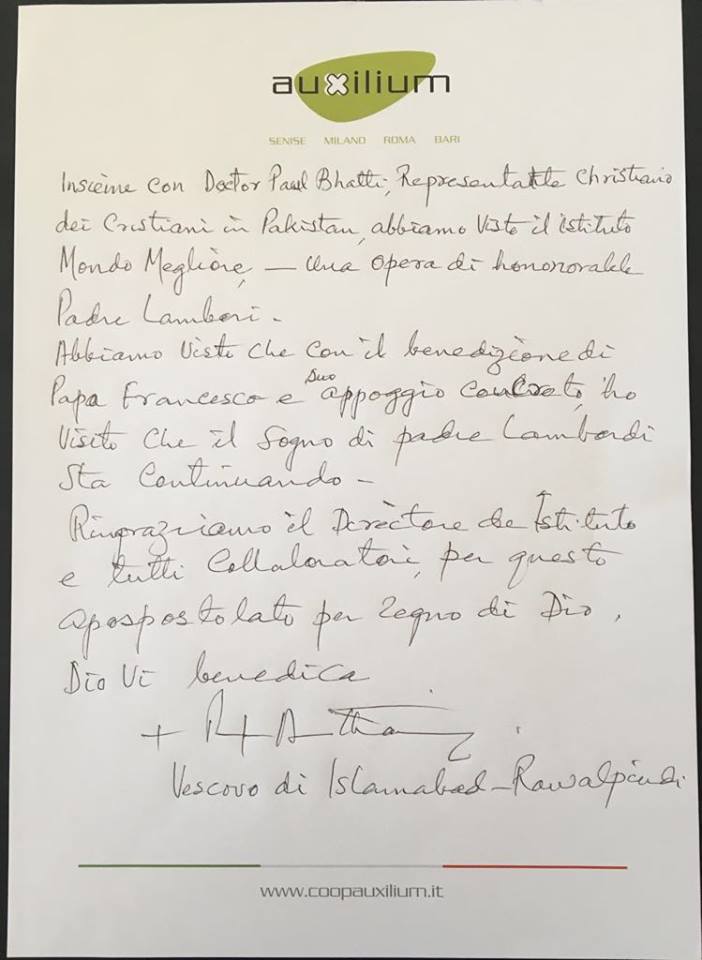 auxilium
SENISE MILANO ROMA BARI
Insieme con Doctor Paul Bhatti, Representatle Christiano
dei Cristiani in Pakistan, abbiamo visto il istituto
Mondo Megliore, – una opera di honororable
Padre Lamberi.
Abbiamo visti che con il benedizione di
Papa Francesco e suo appoggio concreto, ho
visito che il sogno di padre Lombardi
sta continuando –
Ringraziamo il Dirèctore de Istituto
e tutti Collaboratori, per questo
apospostolato per regno di Dio,
Dio vi benedica
+
Vescovo di Islamabad-Rawalpindi
www.coopauxilium.it